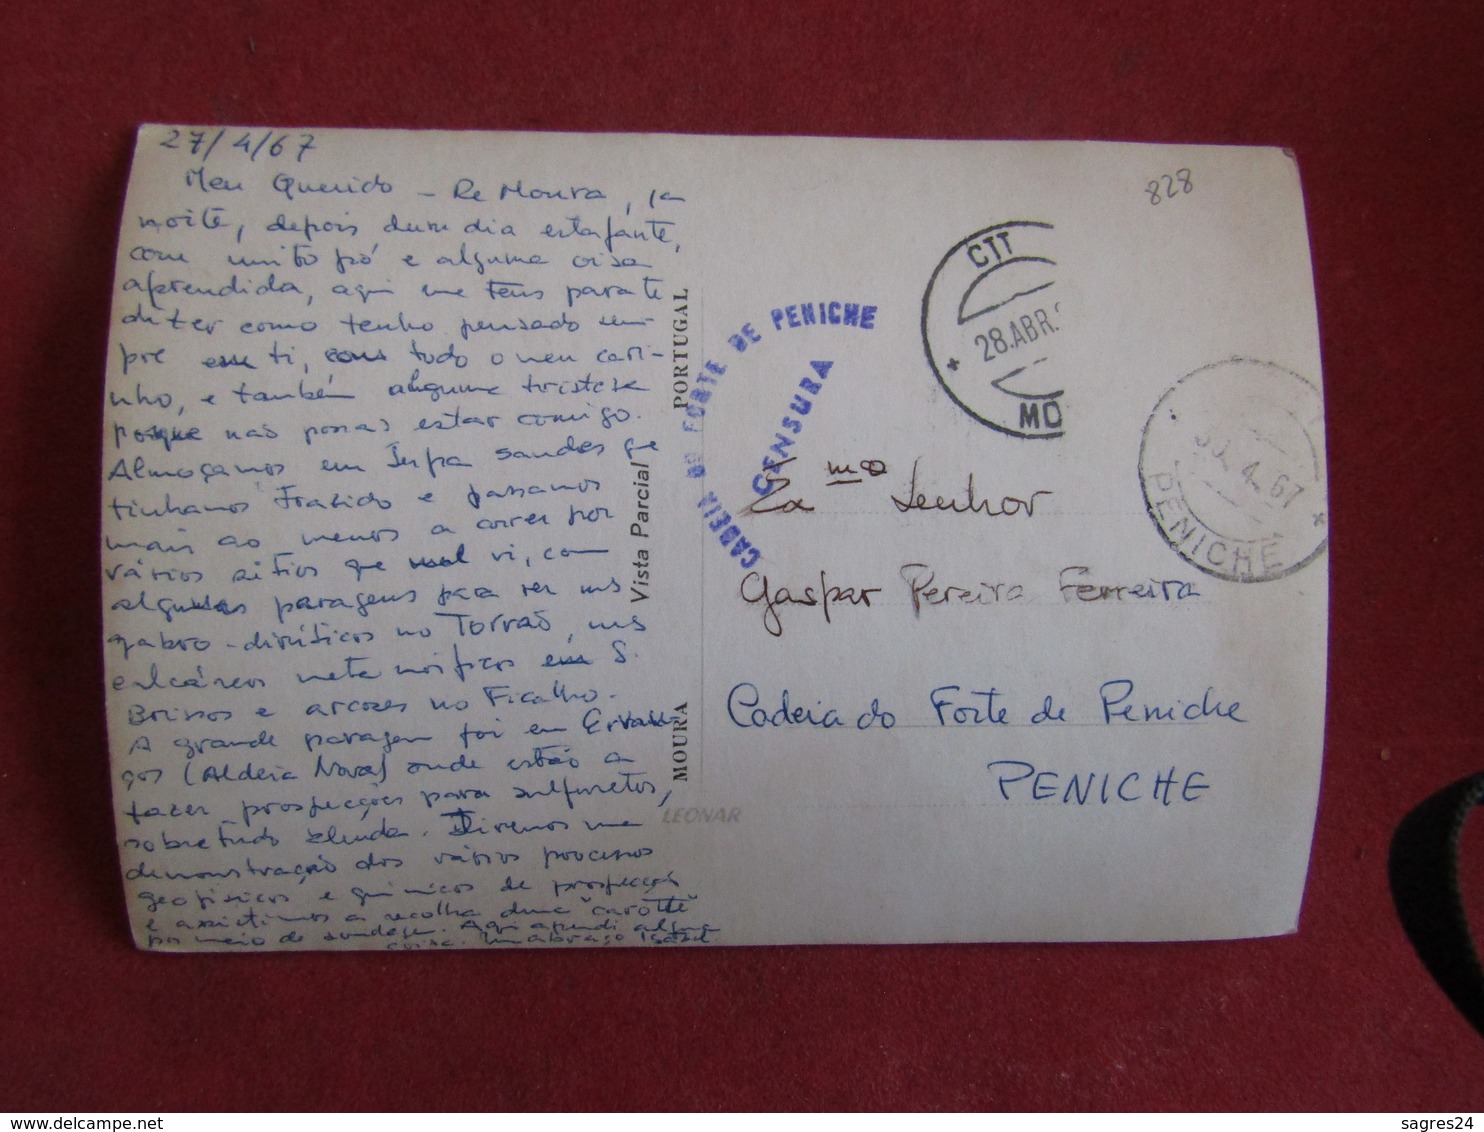 27/4/67
Meu Querido - De Moura, já
noite, depois dum dia estafante,
com muito pó e alguma coisa
aprendida, aqui me tens para te
dizer como tenho pensado sem-
pre em ti, com todo o meu cari-
nho, e também alguma tristeza
porque não possas estar comigo.
Almoçamos em Serpa sandes que
tinhamos trazido e passamos
mais ou menos a correr por
vários sítios que mal vi, com
algumas paragens para ver uns
gabro-dioríticos no Torrão, uns
calcáreos metamórficos em S.
Brissos e arcoses no Ficalho.
A grande paragem foi em
(Aldeia Nova) onde estão a
fazer prospecções para sulfuretos,
sobretudo blenda. Tivemos uma
demonstração dos vários processos
geofísicos e químicos de prospecção
e assistimos a recolha duma "carotte"
por meio de sondagem. Aqui aprendi alguma
coisa. Um abraço Isabel
MOURA Vista Parcial PORTUGAL
LEONAR
828
CTT
28.ABR.
MO
CADEIA DO FORTE DE PENICHE
CENSURA
4. 67
PENICHE
Exmo Senhor
Gaspar Pereira Ferreira
Cadeia do Forte de Peniche
PENICHE
sagres24